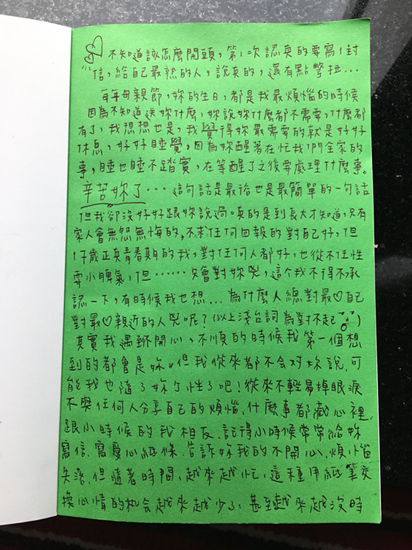 不知道該怎麼開頭，第1次認真的要寫1封
信，給自己最熟的人，說真的，還有點彆扭...
每年母親節，妳的生日，都是我最煩惱的時候
因為不知道送妳什麼，妳說妳什麼都不需要，什麼都
有了，我想想也是，我覺得妳最需要的就是好好
休息，好好睡覺，因為妳醒著在忙我們全家的
事，睡也睡不踏實，在等醒了之後要處理什麼事。
辛苦妳了... 這句話是最俗也是最簡單的一句話
但我卻沒好好跟妳說過。真的是到長大才知道，只有
家人會無怨無悔的，不求任何回報的對自己好，但
17歲正直青春期的我，對任何人都好，也從不任性
耍小脾氣，但......只會對妳兇，這個我不得不承
認一下，有時候我也想...為什麼人總對最♡自己
對最♡親近的人兇呢？(以上淺台詞為對不起)
其實我遇到開心，不順的時候我第一個想
到的都會是妳。但我從來都不會對妳說，可
能我也隨了妳個性了吧！從來不輕易掉眼淚
不與任何人分享自己的煩惱，什麼事都藏心裡
跟小時候的我相反，記得小時候常常給妳
寫信，寫愛心紙條，告訴妳我的不開心，煩惱
失落，但隨著時間，越來越忙，這種用紙筆交
換心情的機會越來越少了，甚至越來越沒時